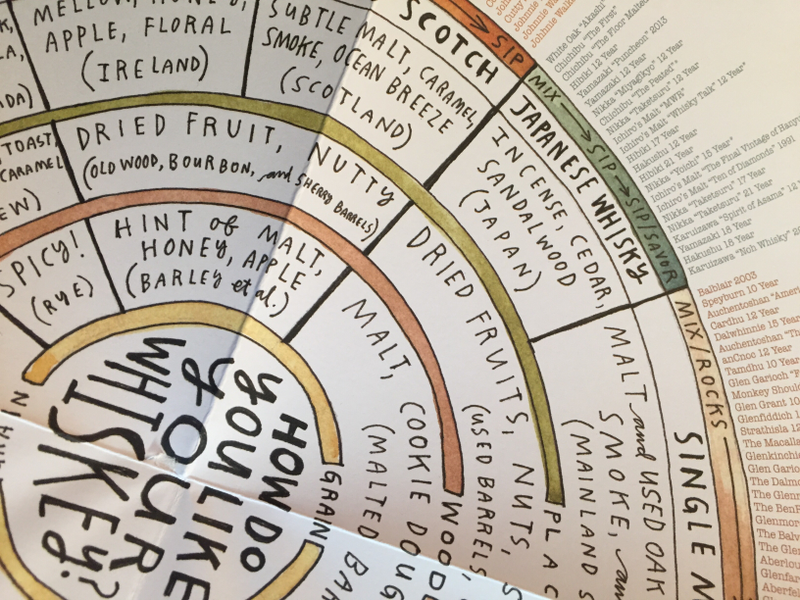 APPLE, FLORAL
(IRELAND)
SUBTLE
SMOKE, OCEAN BREEZE
(SCOTLAND)
MALT, CARAMEL,
SCOTCH
SIP
MIX → SIP → SIP/SAVOR
JAPANESE WHISKY
INCENSE, CEDAR,
SANDALWOOD
(JAPAN)
TOAST,
CARAMEL
DRIED FRUIT,
NUTTY
(OLD WOOD, BOURBON, and SHERRY BARRELS)
SPICY!
(RYE)
HINT of MALT,
HONEY, APPLE
(BARLEY et al.)
DRIED FRUITS, NUTS,
(USED BARRELS,
MALT, COOKIE DOUG
(MALTED BAR
MALT and USED OAK
SMOKE, and
(MAINLAND S
MIX/ROCKS
SINGLE M
GRAIN
WOOD
PLAC
HOW DO
YOU LIKE
YOUR
WHISKEY?
Johnnie Walk
White Oak "Akashi
Chichibu "The First"
Chichibu "The Floor Malted
Hibiki 12 Year
Yamazaki "Puncheon" 2013
Yamazaki 12 Year
Nikka "Miyagikyo" 12 Year
Chichibu "The Peated"
Nikka "Taketsuru" 12 Year
Ichiro's Malt "MWR"
Ichiro's Malt "Whisky Talk" 12 Year"
Hibiki 17 Year
Hakushu 12 Year
Hibiki 21 Year
Nikka "Yoichi" 15 Year"
Ichiro's Malt "The Final Vintage of Hanyu
Ichiro's Malt "Ten of Diamonds" 1991
Nikka "Taketsuru" 17 Year
Nikka "Taketsuru" 21 Year
Karuizawa "Spirit of Asama" 12
Yamazaki 18 Year
Hakushu 18 Year
Karuizawa "Noh Whisky" 29
Balblair 2003
Speyburn 10 Year
Auchentoshan "Ameri
Cardhu 12 Year
Dalwhinnie 15 Year
Auchentoshan "Th
anCnoc 12 Year
Tamdhu 10 Year
Glen Garioch "F
Monkey Should
Glen Grant 10
Glenfiddich 1
Strathisla 12
The Macalla
Glenkinchie
Glen Gario
The Dalmo
The Glenr
The BenR
Glenmor
The Balv
The Gle
Aberlou
Glenfar
Aberfel